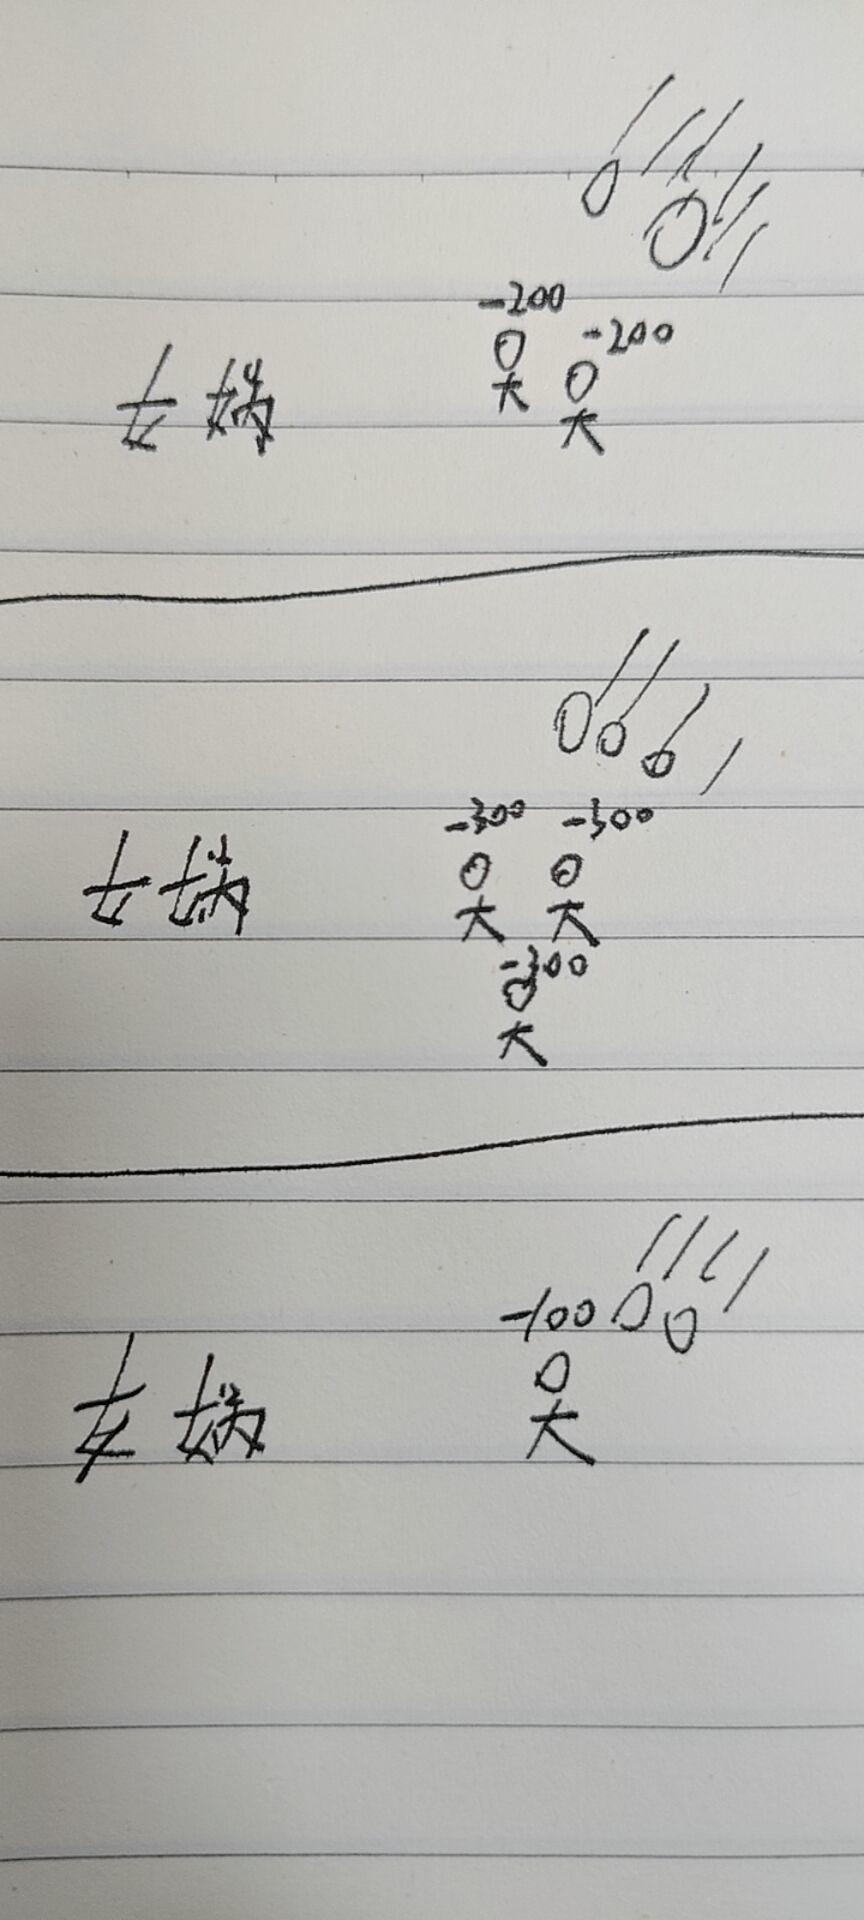 -200
-200
女娲
-300 -300
女娲
-300
-100
女娲